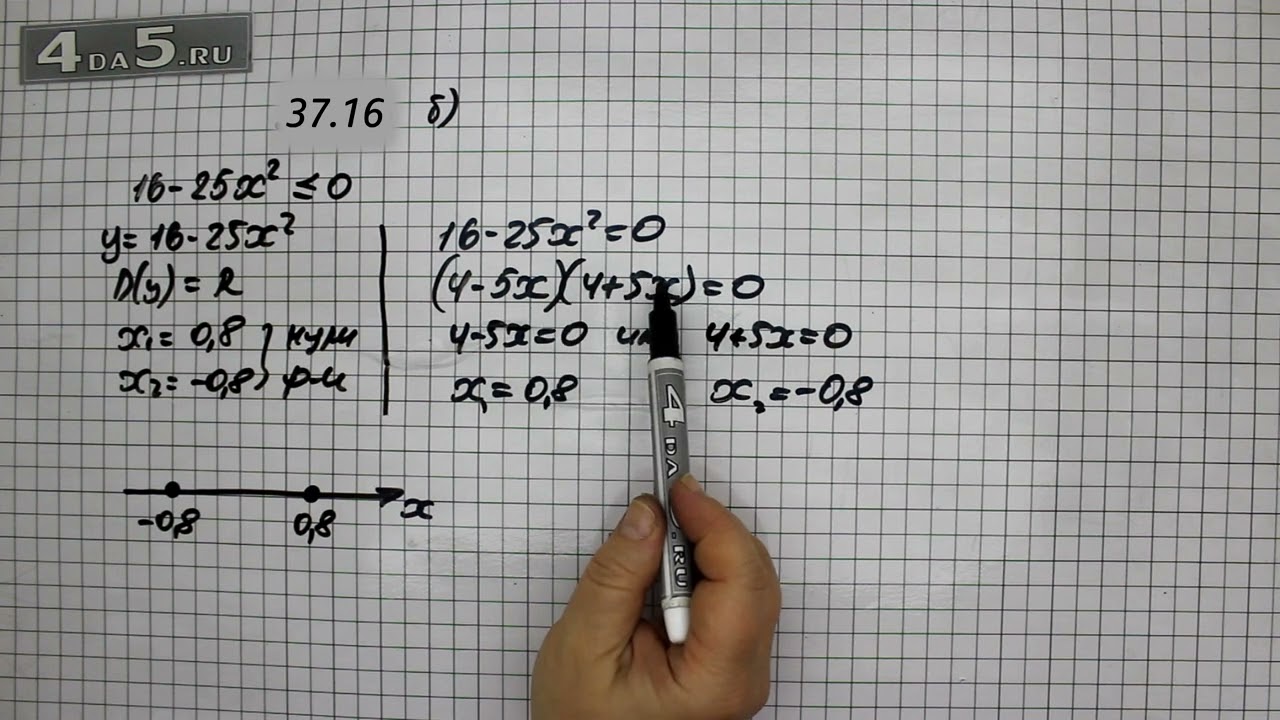 4DA5.RU
37.16 б)
16-25x² ≤ 0
y = 16-25x²
D(y) = R
x₁ = 0,8 } нули
x₂ = -0,8 } ф-и
16-25x² = 0
(4-5x)(4+5x) = 0
4-5x=0 4+5x=0
x₁ = 0,8 x₂ = -0,8
-0,8 0,8 x
4 DA .RU